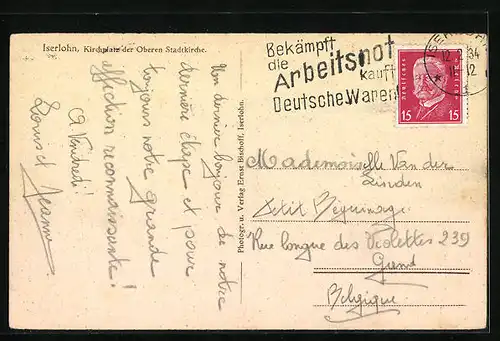 Iserlohn, Kirchplatz der Oberen Stadtkirche.
Un dernier bonjour de notre
dernière étape et pour
toujours notre grande
affection reconnaissante!
A Vendredi!
Louis et Jeanne
Photogr. u. Verlag Ernst Bischoff, Iserlohn.
Bekämpft
die
Arbeitsnot
kauft
Deutsche Waren
34
12
DEUTSCHES REICH
15 15
Mademoiselle Van der
Linden
Petit Béguinage
Rue longue des Violettes 239
Gand
Belgique